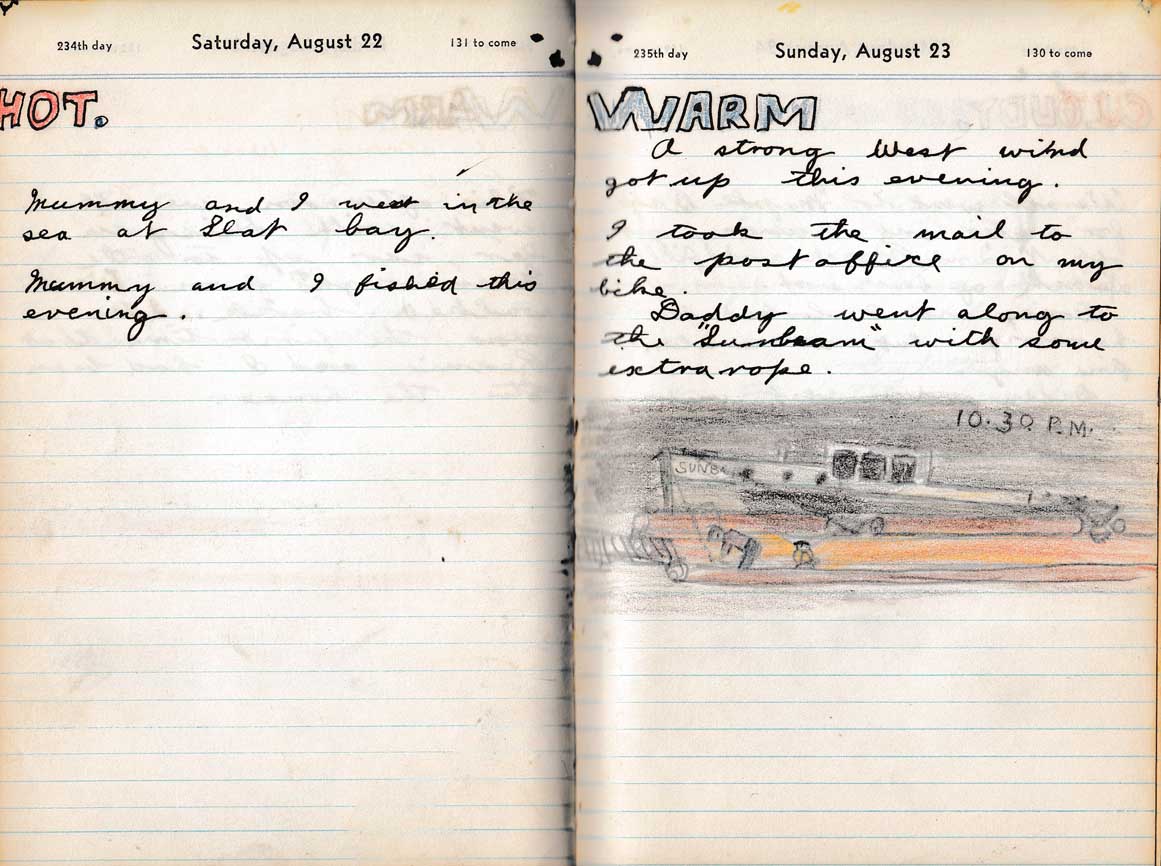 234th day Saturday, August 22 131 to come
HOT.
Mummy and I went in the
sea at Slat bay.
Mummy and I fished this
evening.
235th day Sunday, August 23 130 to come
WARM
A strong West wind
got up this evening.
I took the mail to
the post office on my
bike.
Daddy went along to
the "Sunbeam" with some
extra rope.
10.30 P.M.
SUNB